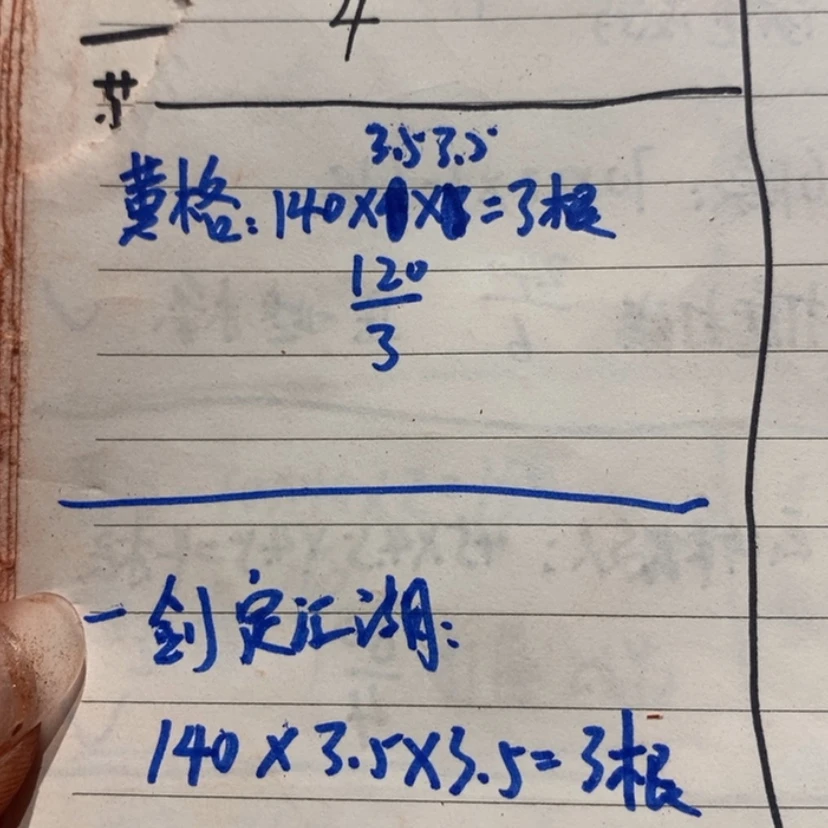 4
3.5 3.5
黄格:140××=3根
120
3
一剑定江湖:
140×3.5×3.5=3根